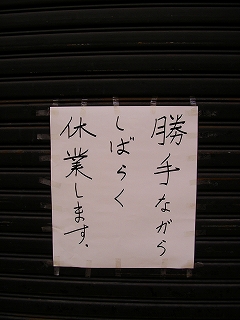 勝手ながら
しばらく
休業します、